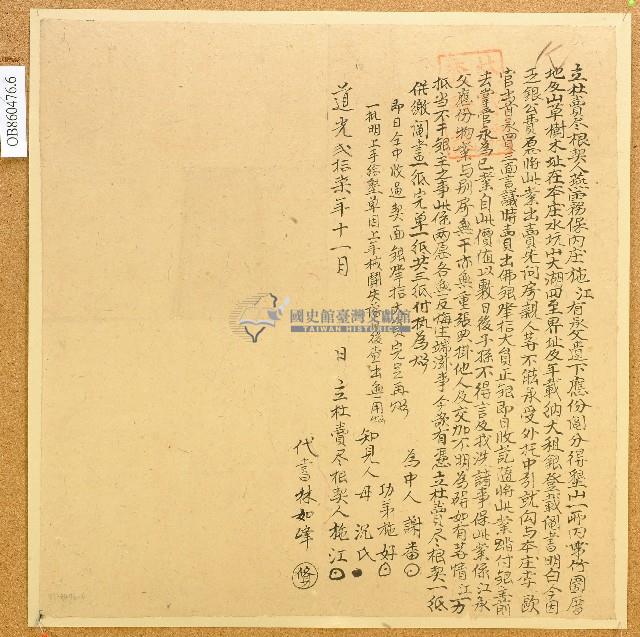 立杜賣尽根契人燕霧保內庄施江有承父遺下應份鬮分得墾山一所內帶竹圍厝
地及山草樹木址在本庄水坑山大湖四至界址及年載納大租銀登載鬮書明白今因
乏銀公費愿將此業出賣先问房親人等不能承受外托中引就向与本庄李歐
官出首承買三面言議時賣出佛銀肆拾大員正銀即日收訖隨將此業踏付銀主前
去掌管永為己業自此價值以敷日後子孫不得言及找洗諸事保此業係江承
父應份物業与別房無干亦無重張典掛他人及交加不明為碍如有等情江一力
抵当不干銀主之事此係兩愿各無反悔生端滋事今欲有憑立杜賣尽根契一紙
併繳鬮書一紙 完單一紙共三紙付执為炤
即日仝中收過契面銀肆拾大員完足再炤
一批明上手給墾單因上年械鬪失落日後查出無用炤
為中人 謝番
功弟施好
知見人母 沉氏
道光貳拾柒年十一月 日立杜賣尽根契人施江
代書林如峰
國史館臺灣文獻館
TAIWAN HISTORICA
OB860476.6